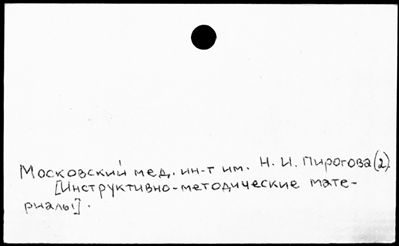 Московский мед. ин-т им. Н. И. Пирогова (2).
[Инструктивно-методические мате-
риалы].